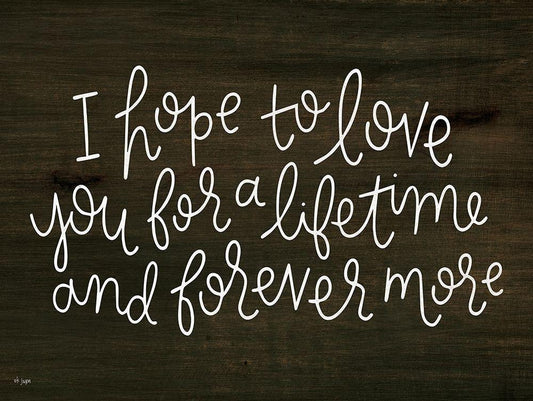 I hope to love
you for a lifetime
and forever more